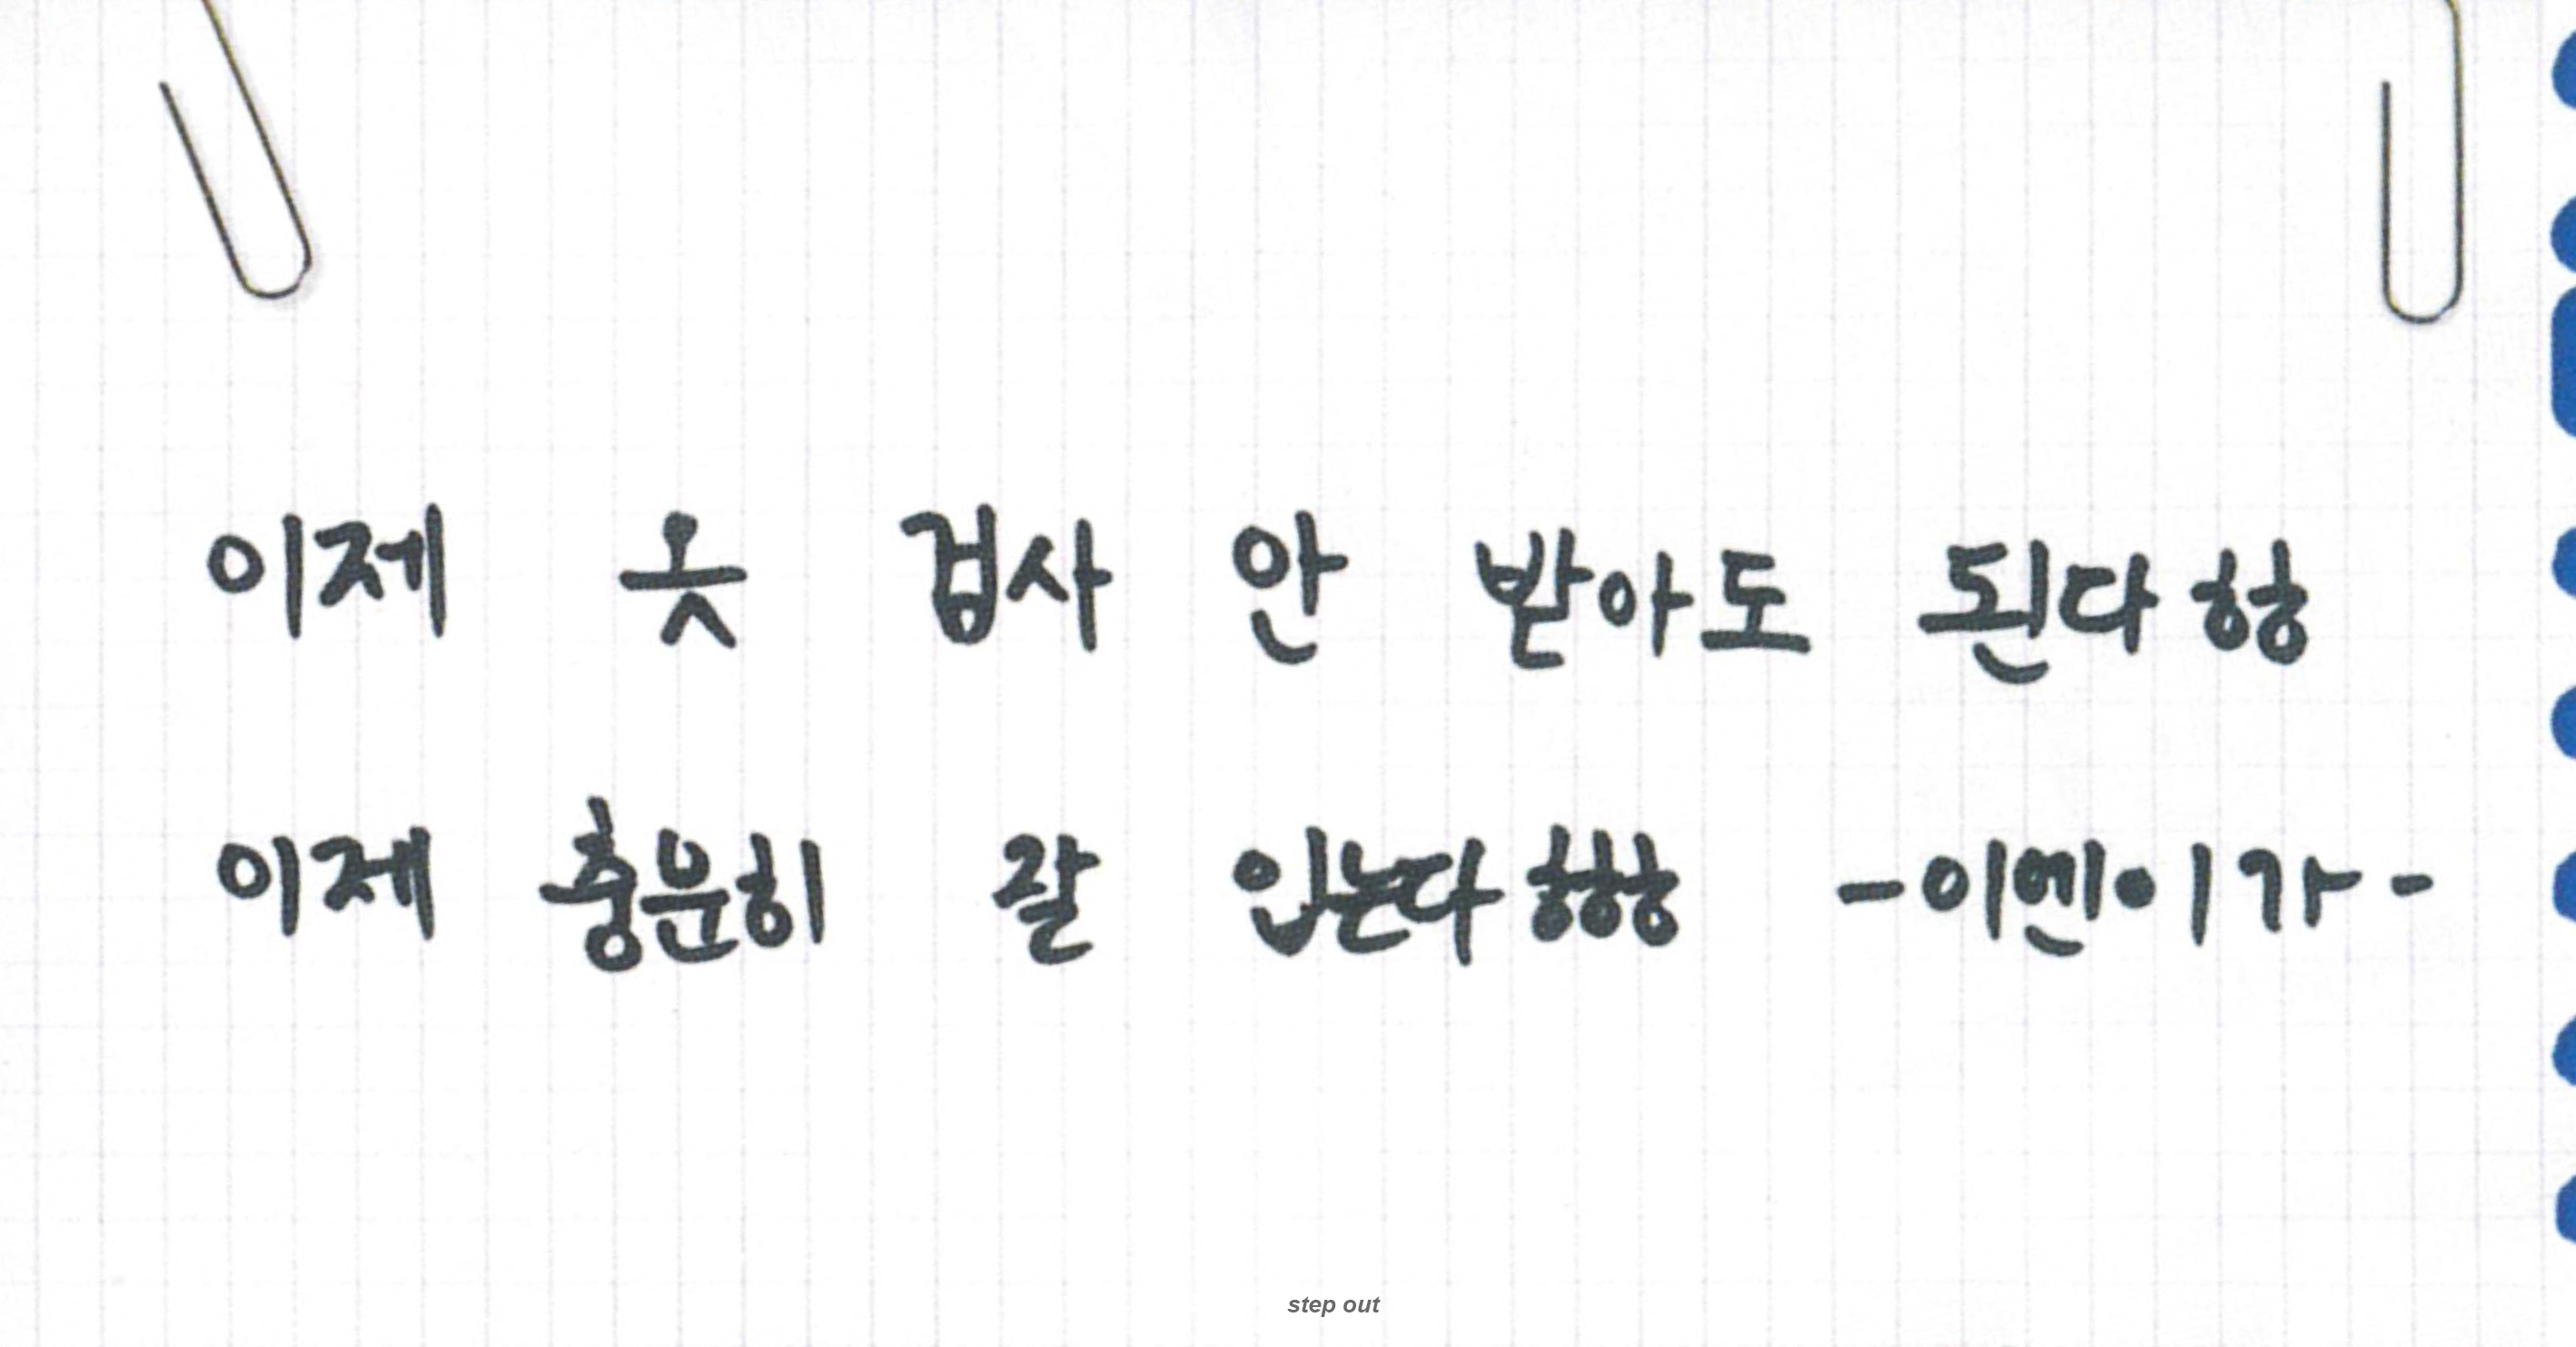 이제 옷 검사 안 받아도 된다 항
이제 충분히 잘 입는다 항항 -이엔이가-
step out